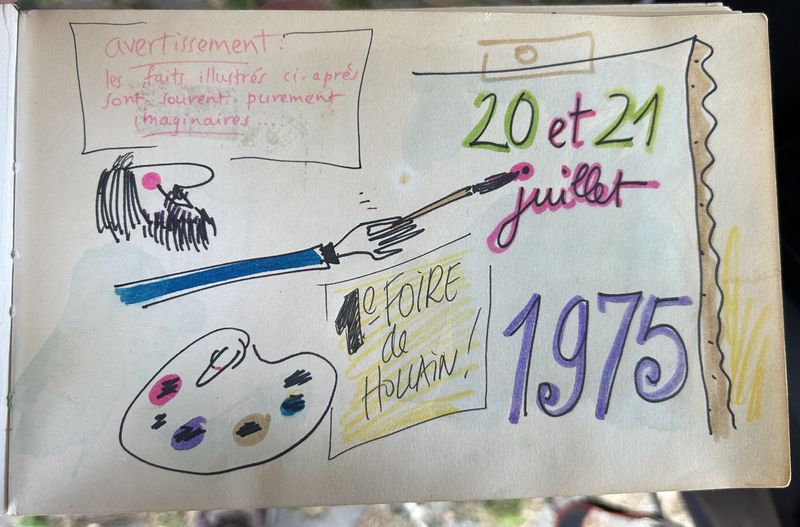 avertissement:
les faits illustrés ci-après
sont souvent purement
imaginaires....
20 et 21
juillet
1e FOIRE
de
HOLLAIN!
1975